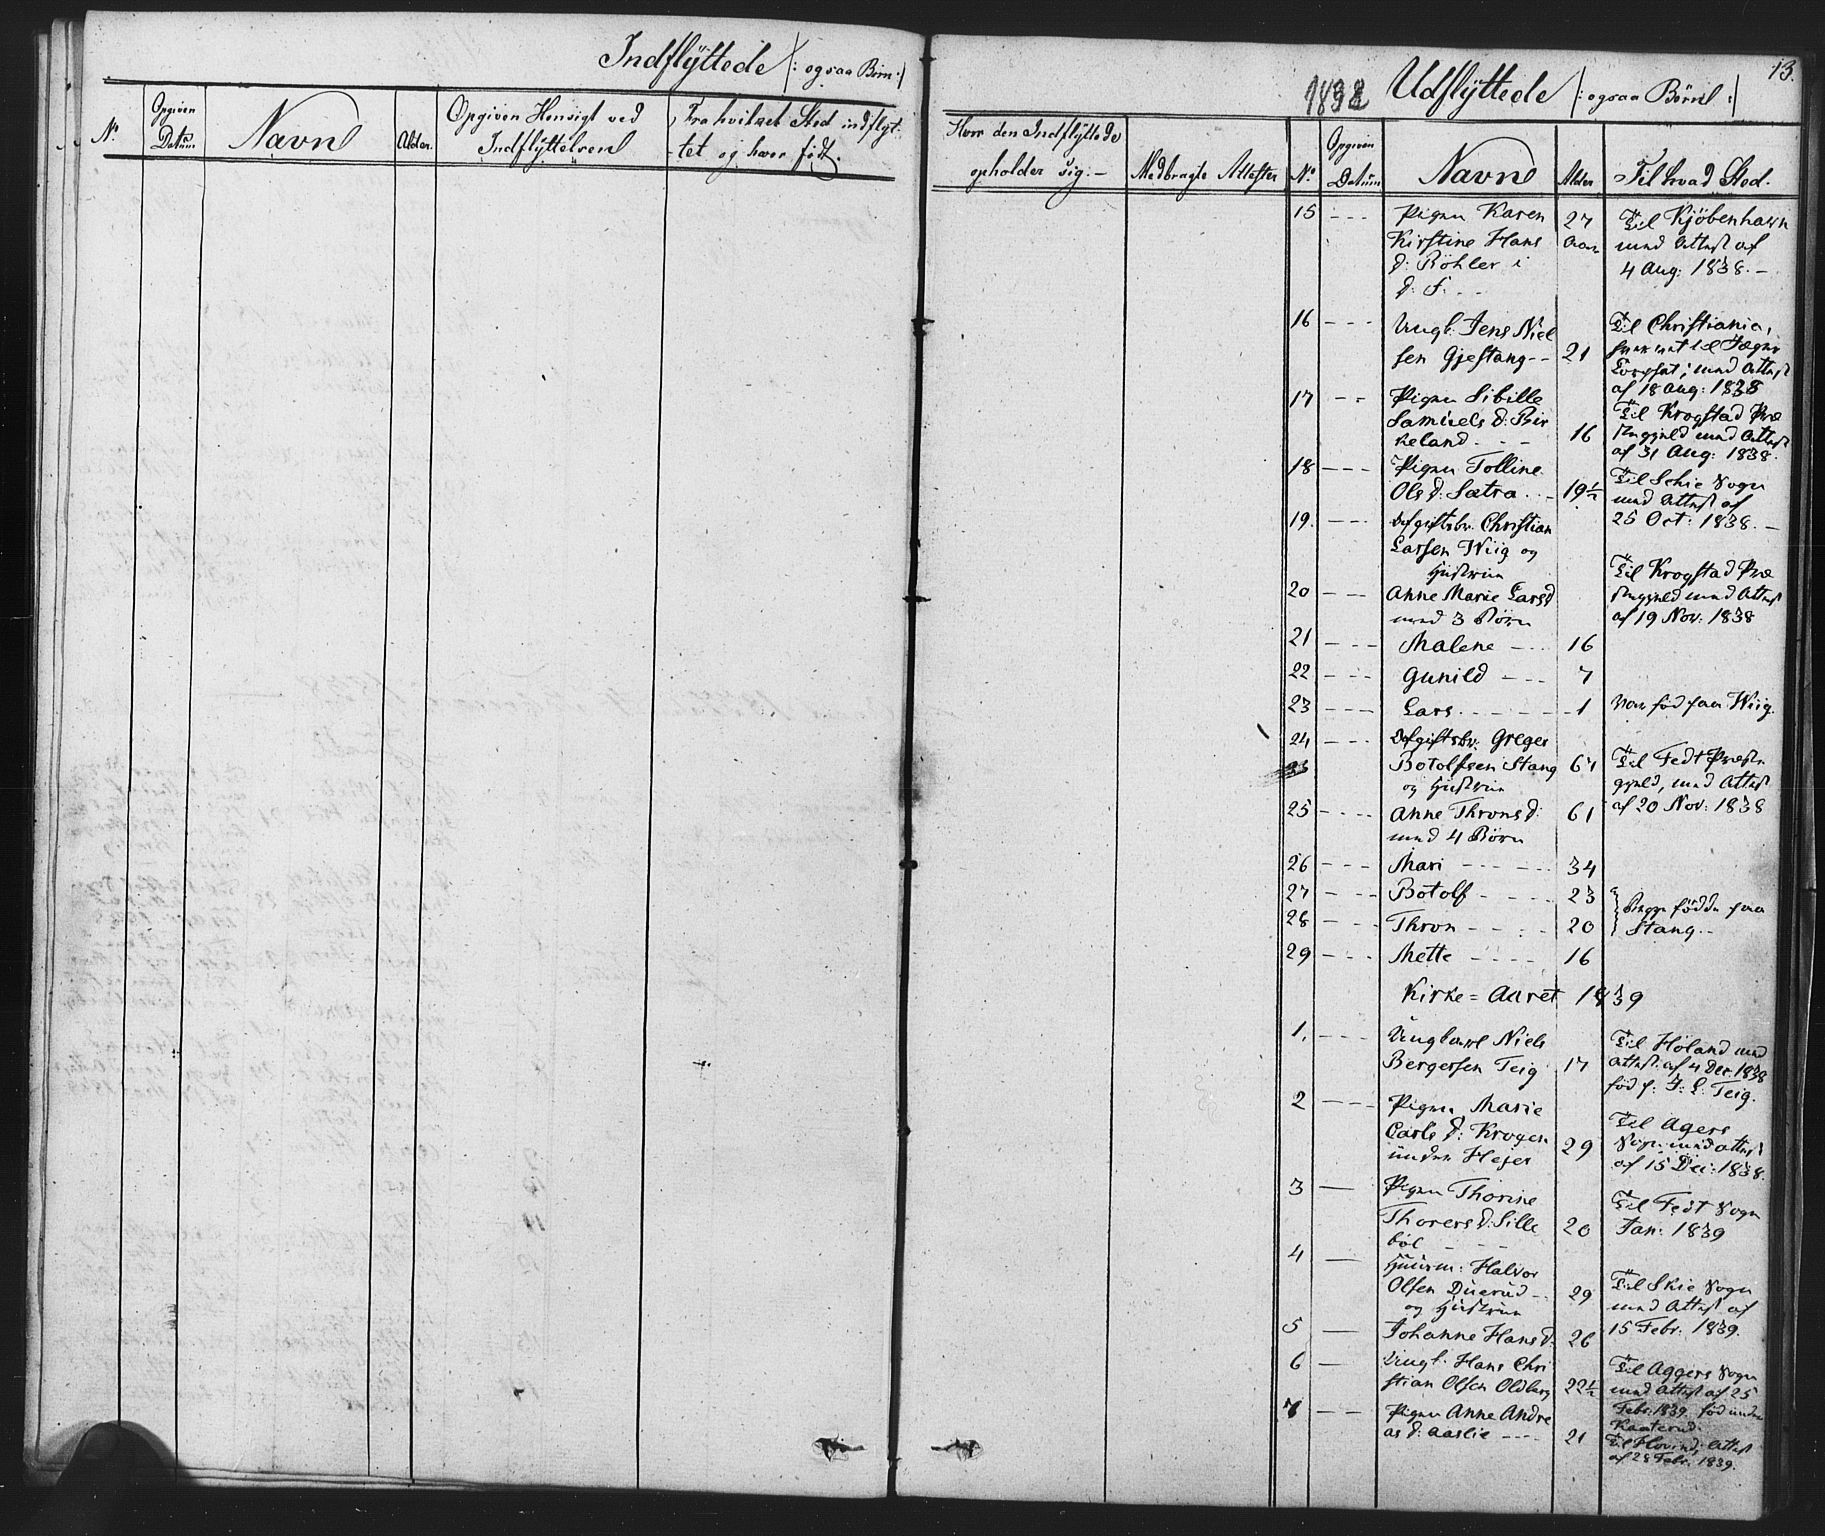 Indflÿttede /: ogsaa Børn :/
No
Opgiven Datum
Navne
Alder
Opgiven Hensigt ved Indflÿttelsen
Fra hvilket Sted indflyt-
tet og hvor født.
13.
1838 Udflÿttede /: ogsaa Børn :/
Hvor den Indflÿttede opholder sig. –
Medbragte Attester
No
Opgiven Datum
Navne
Alder
Til hvad Sted.
15 --- Pigen Karen 27 Til Kjöbenhavn
Kirstine Hans Aar med Attest af
d: Böhler i 4 Aug: 1838. –
d: S. --
16 --- Ungk: Jens Niel Til Christiania,
sen Gjestang -- 21
med Attest
af 18 Aug: 1838
17 -- Pigen Sibille Til Krogstad Præ
Samuels d: Bir stegjeld med Attest
keland. - - - 16 af 31 Aug: 1838.
18 --- Pigen Tolline Til Schie Sogn
Ols d: Sætra. -- 19½ med Attest af
25 Oct: 1838. –
19. --- Christian
Larsen Wiig og
Hustruen Til Krogstad Præ
20 --- Anne Marie Larsd stegjeld med Attest
med 3 Börn af 19 Nov: 1838
21 --- Malene --- 16
22 --- Gunild --- 7
23 ---- Lars. ----- 1 Wiig.
24 --- Greger
Botolfsen Stang 67 Til Fedt Præste
og Hustruen gjeld, med Attest
af 20 Nov: 1838
25 ---- Anne Throns d: 61
med 4 Börn
26 --- Mari ---- 34
27 --- Botolf ---- 23 Begge födde paa
28 --- Thron ---- 20 Stang. –
29 ---- Mette ---- 16
Kirke = Aaret 1839
1. --- Ungkarl Niels Til Höland med
Bergersen Teig 17 Attest af 4 Dec. 1838
Teig.
2 --- Pigen Marie Til Agers
Carls d: Krogen 29 Sogn med Attest
under Hejer af 15 Dec: 1838.
3 — Pigen Thorine Til Fedt Sogn
Thorers d: Sille 20 Jan: 1839
böl - - -
4 — Huusm: Halvor
Olsen Duerud -- 29 Til Skie Sogn
og Hustruen med Attest af
5 — Johanne Hans d: 26 15 Febr: 1839.
6 — Ungk: Hans Chri Til Aggers Sogn
stian Olsen Oldberg 22½ med Attest af 25
Febr: 1839. föd under
7 -- Pigen Anne Andre
as d: Aaslie ---- 21 Til Hovind, Attest
af 28 Febr: 1839.